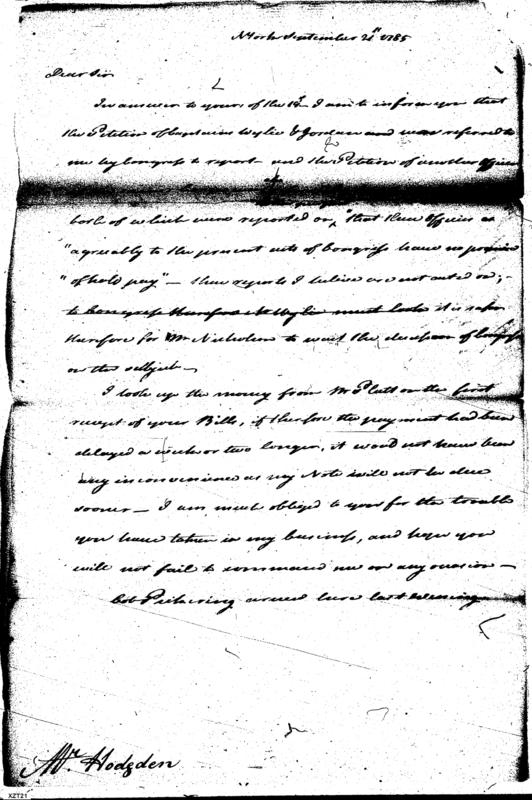 N York September 21st 1785
Dear Sir
In answer to yours of the 18th I am to inform you that
the Petition of Captains Wylie & Jordan and were referred to
me by Congress to report — and the Petition of another Officer
both of which were reported on, "that these Officers as
"agreeably to the present acts of Congress have no promise
"of half pay" — these reports I believe are not acted on; —
to Congress therefore Mr Wylie must look it is
therefore for Mr Nicholson to wait the decision of Congress
on this subject —
I took up the money from Mr Platt on the first
receipt of your Bills, if therefore the payment had been
delayed a week or two longer, it would not have been
any inconvenience as my Note will not be due
sooner — I am much obliged to you for the trouble
you have taken in my business, and hope you
will not fail to command me on any occasion —
Col Pickering arrived here last evening
Mr. Hodgden
XZT21